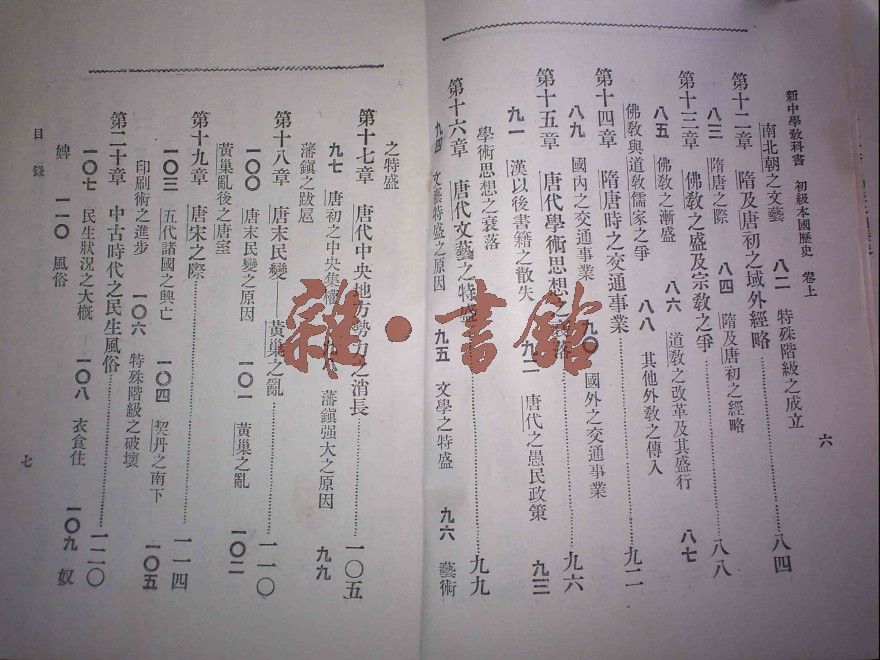 新中學教科書 初級本國歷史 卷上
六
南北朝之文藝 八二 特殊階級之成立
第十二章 隋及唐初之域外經略 八四
八三 隋唐之際 八四 隋及唐初之經略
第十三章 佛敎之盛及宗敎之爭 八八
八五 佛敎之漸盛 八六 道敎之改革及其盛行 八七
佛敎與道敎儒家之爭 八八 其他外敎之傳入
第十四章 隋唐時之交通事業 九二
八九 國內之交通事業 九〇 國外之交通事業
第十五章 唐代學術思想之衰落 九六
九一 漢以後書籍之散失 九二 唐代之愚民政策 九三
學術思想之衰落
第十六章 唐代文藝之特盛 九九
九四 文藝特盛之原因 九五 文學之特盛 九六 藝術
之特盛
第十七章 唐代中央地方勢力之消長 一〇五
九七 唐初之中央集權 九八 藩鎭强大之原因 九九
藩鎭之跋扈
第十八章 唐末民變——黃巢之亂 一一〇
一〇〇 唐末民變之原因 一〇一 黃巢之亂 一〇二
黃巢亂後之唐室
第十九章 唐宋之際 一一四
一〇三 五代諸國之興亡 一〇四 契丹之南下 一〇五
印刷術之進步 一〇六 特殊階級之破壞
第二十章 中古時代之民生風俗 一二〇
一〇七 民生狀況之大槪 一〇八 衣食住 一〇九 奴
婢 一一〇 風俗
目錄
七
雜·書館